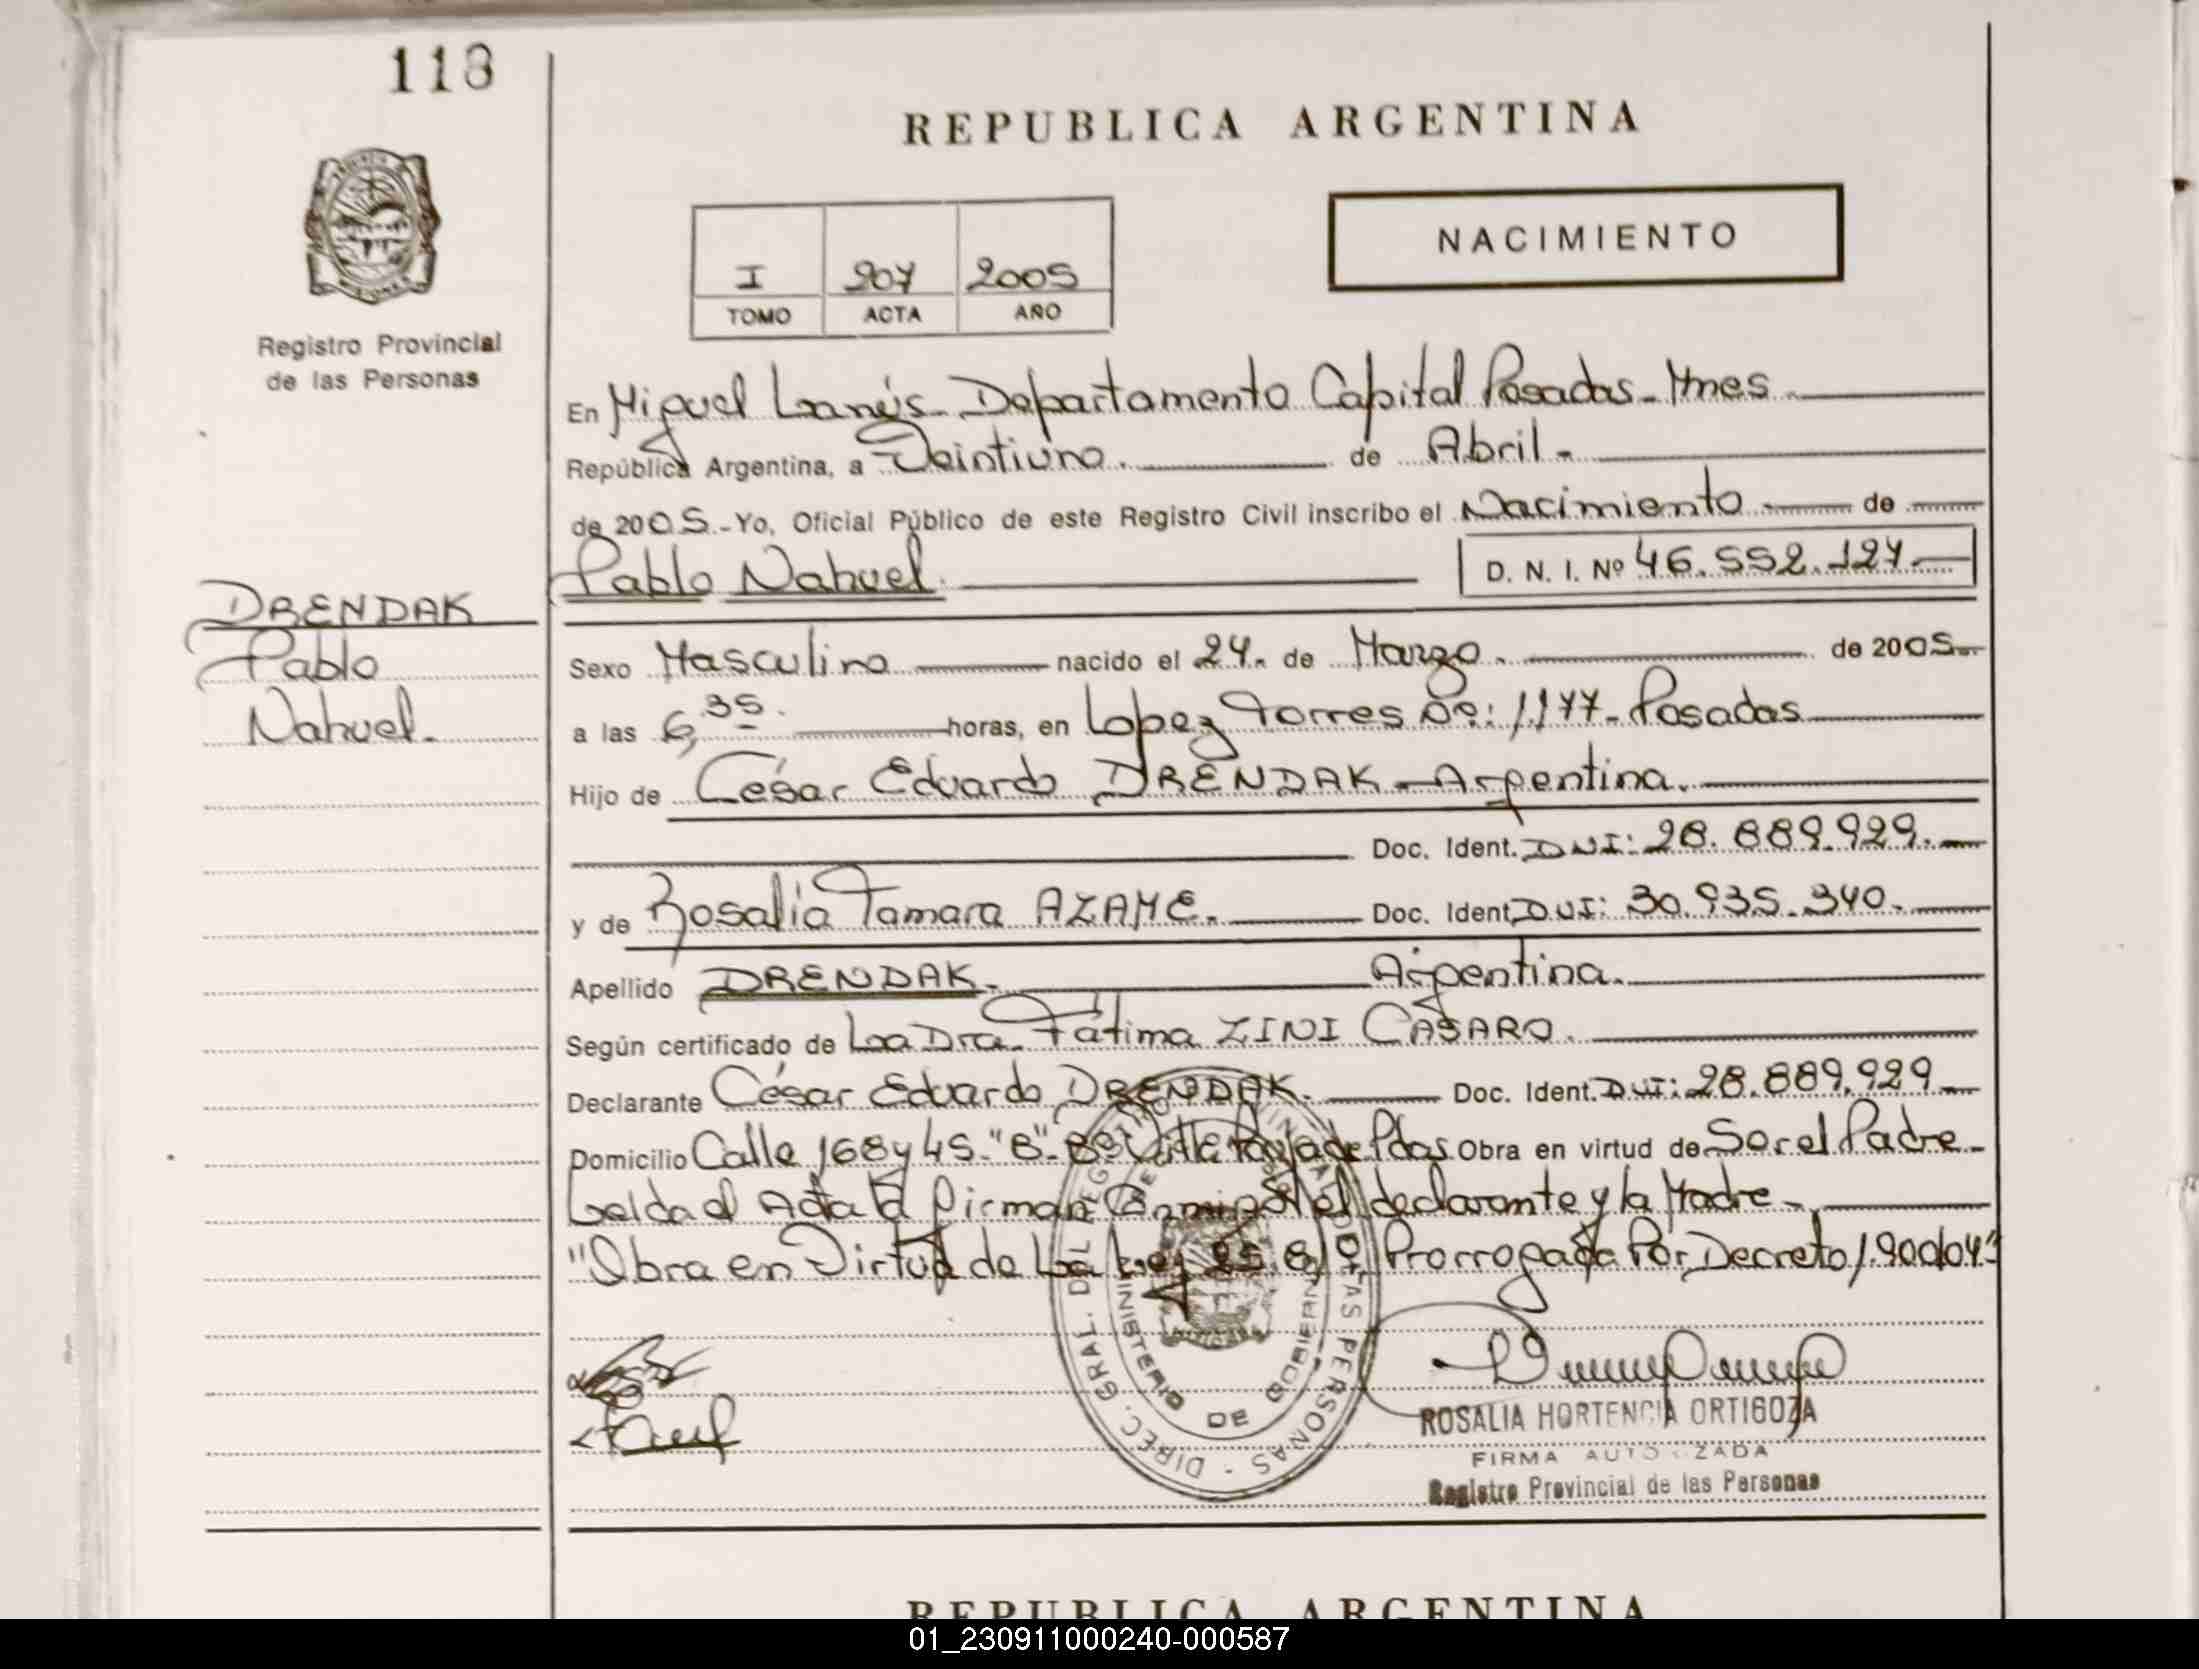 118
REPUBLICA ARGENTINA
NACIMIENTO
I 207 2005
TOMO ACTA AÑO
Registro Provincial
de las Personas
En Miguel Lanús - Departamento Capital Posadas - Mnes.
República Argentina, a Veintiuno. de Abril.
de 2005.- Yo, Oficial Público de este Registro Civil inscribo el Nacimiento de
Pablo Nahuel. D. N. I. Nº 46.552.127
DRENDAK
Pablo
Nahuel.
Sexo Masculino nacido el 24. de Marzo. de 2005.
a las 6,35. horas, en Lopez Torres Nº: 1177 - Posadas
Hijo de César Eduardo DRENDAK - Argentina.
Doc. Ident. DNI: 28.889.929.
y de Rosalia Tamara AZAME. Doc. Ident. DNI: 30.935.340.
Apellido DRENDAK. Argentina.
Según certificado de La Dra. Fátima ZINI CASARO.
Declarante César Eduardo DRENDAK. Doc. Ident. DNI: 28.889.929
Domicilio Calle 168 y 45 "B" - Bº Pdas. Obra en virtud de Ser el Padre -
Leida el Acta la Firman Conmigo el declarante y la Madre -
"Obra en Virtud de La Ley 25.819 Prorrogada Por Decreto 1.900/04"
DIREC. GRAL. DEL REGISTRO PROVINCIAL DE LAS PERSONAS
MINISTERIO DE GOBIERNO
ROSALIA HORTENCIA ORTIGOZA
FIRMA AUTORIZADA
Registro Provincial de las Personas
REPUBLICA ARGENTINA
01_230911000240-000587